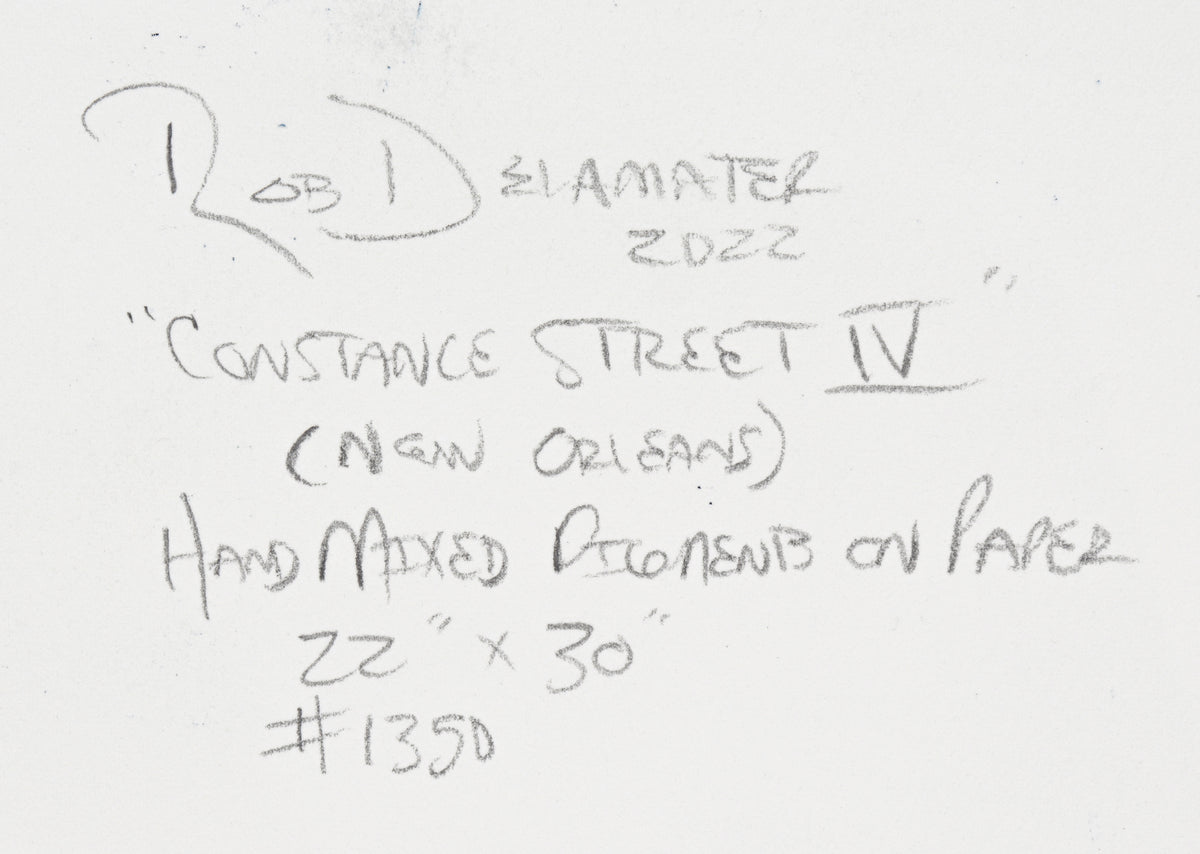 Rob Delamater
2022
"Constance Street IV"
(New Orleans)
Hand Mixed Pigments on Paper
22" x 30"
#1350